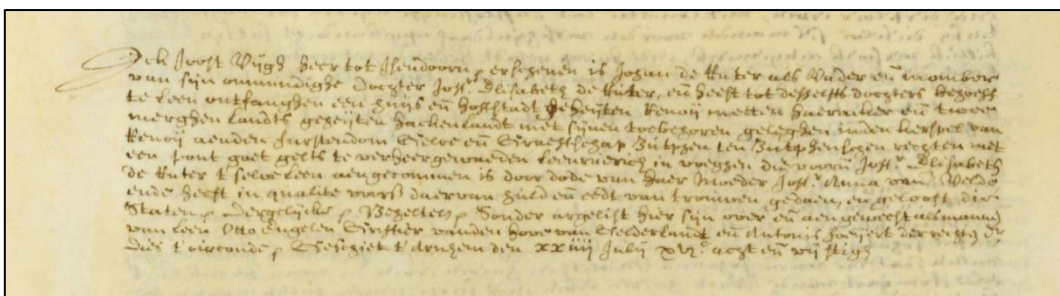 Ick Joost Vijgh Heer tot Isendoorn, erschenen is Johan de Ruter als Vader eñ momboir
van sijn onmundighe dochter Joffr. Elisabeth de Ruter, eñ heeft tot desselfs dochters behoeff
te leen ontfanghen een huijs eñ hoffstadt geheijten Renoij metten eñ twee
merghen landts geheijten Hackenlandt met sijnen toebehoren geleghen inden kerspel van
Renoij aenden furstendom Gelre eñ Graeffschap Zutphen ten Zutphenschen rechten met
een pont goet gelts te verheergewaeden Leenruerich in vueghen die voors. Joffr. Elisabeth
de Ruter t'selve Leen aengecommen is door dode van haer moeder Joffr. Anna van
ende heeft in qualite voors. daervan huld eñ eedt van trouwen gedaen, en gelooft die
Staten p Dergelijcke p p Sonder argelist hier sijn over eñ aen geweest als mannen
van leen Otto Engelen Griffier vanden Hove van Gelderlandt eñ Antonis
dies t'oirconde p Geschiet t'Arnhem den xxiiij Julij xvjc acht eñ vijftigh